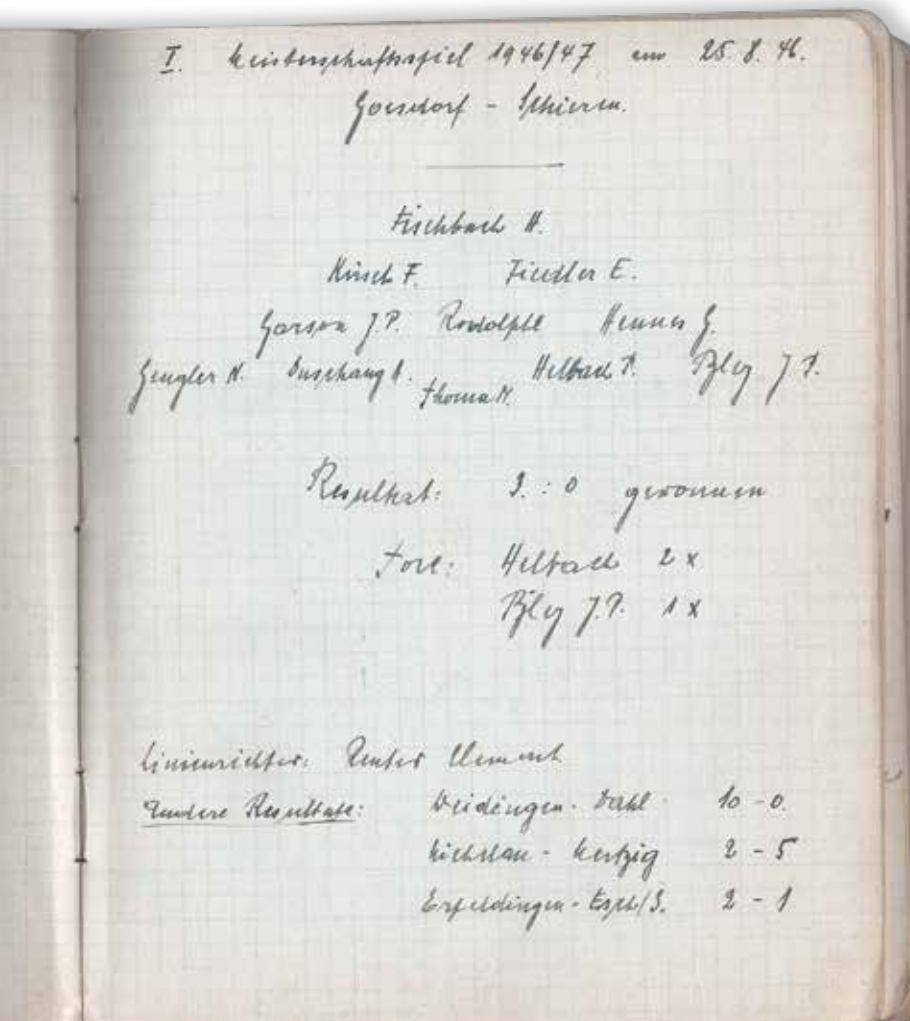 I. Meisterschaftsspiel 1946/47 am 25.8.46.
Goesdorf - Schieren.
Fischbach H.
Kirsch F. Fiedler E.
Garson J.P. Rodolphe Hennes G.
Gengler N. Duschang A. Helbach P. Bley J.P.
Thoma M.
Resultat: 3 : 0 gewonnen
Tore: Helbach 2 x
Bley J.P. 1 x
Linienrichter: Reuter Clement
Andere Resultate: Weidingen - Dahl 10 - 0.
Michelau - Mertzig 2 - 5
Erpeldingen - Esch/S. 2 - 1